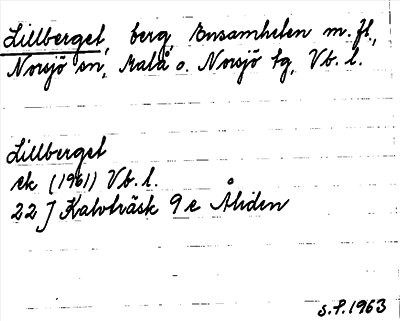 Lillberget, berg, Ensamheten m. fl.,
Norsjö sn, Malå o. Norsjö tg, Vb. l.
Lillberget
ek (1961) Vb. l.
22 J Kalvträsk 9 e Åliden
s.f. 1963